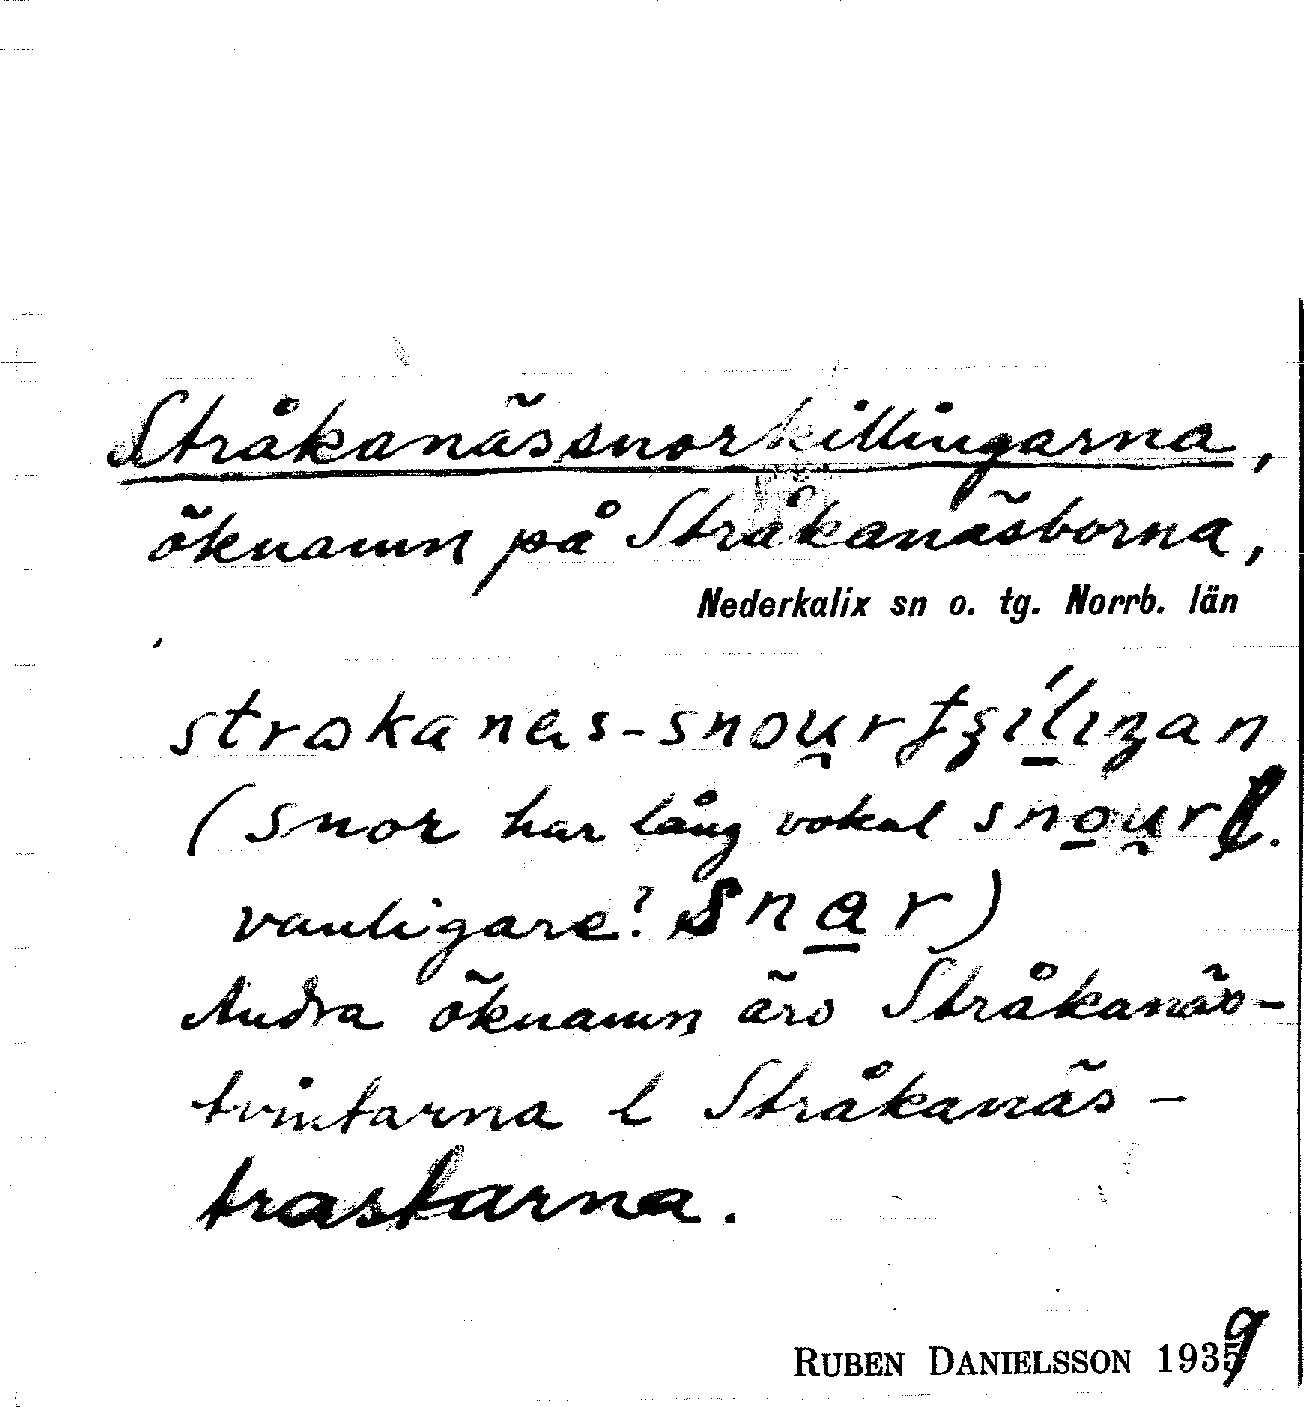 Stråkanässnorkillingarna,
öknamn på Stråkanäsborna,
Nederkalix sn o. tg. Norrb. län
(snor har lång vokal snou̯r l.
vanligare? snar)
Andra öknamn äro Stråkanäs-
tvintarna l Stråkanäs-
trastarna.
RUBEN DANIELSSON 1939